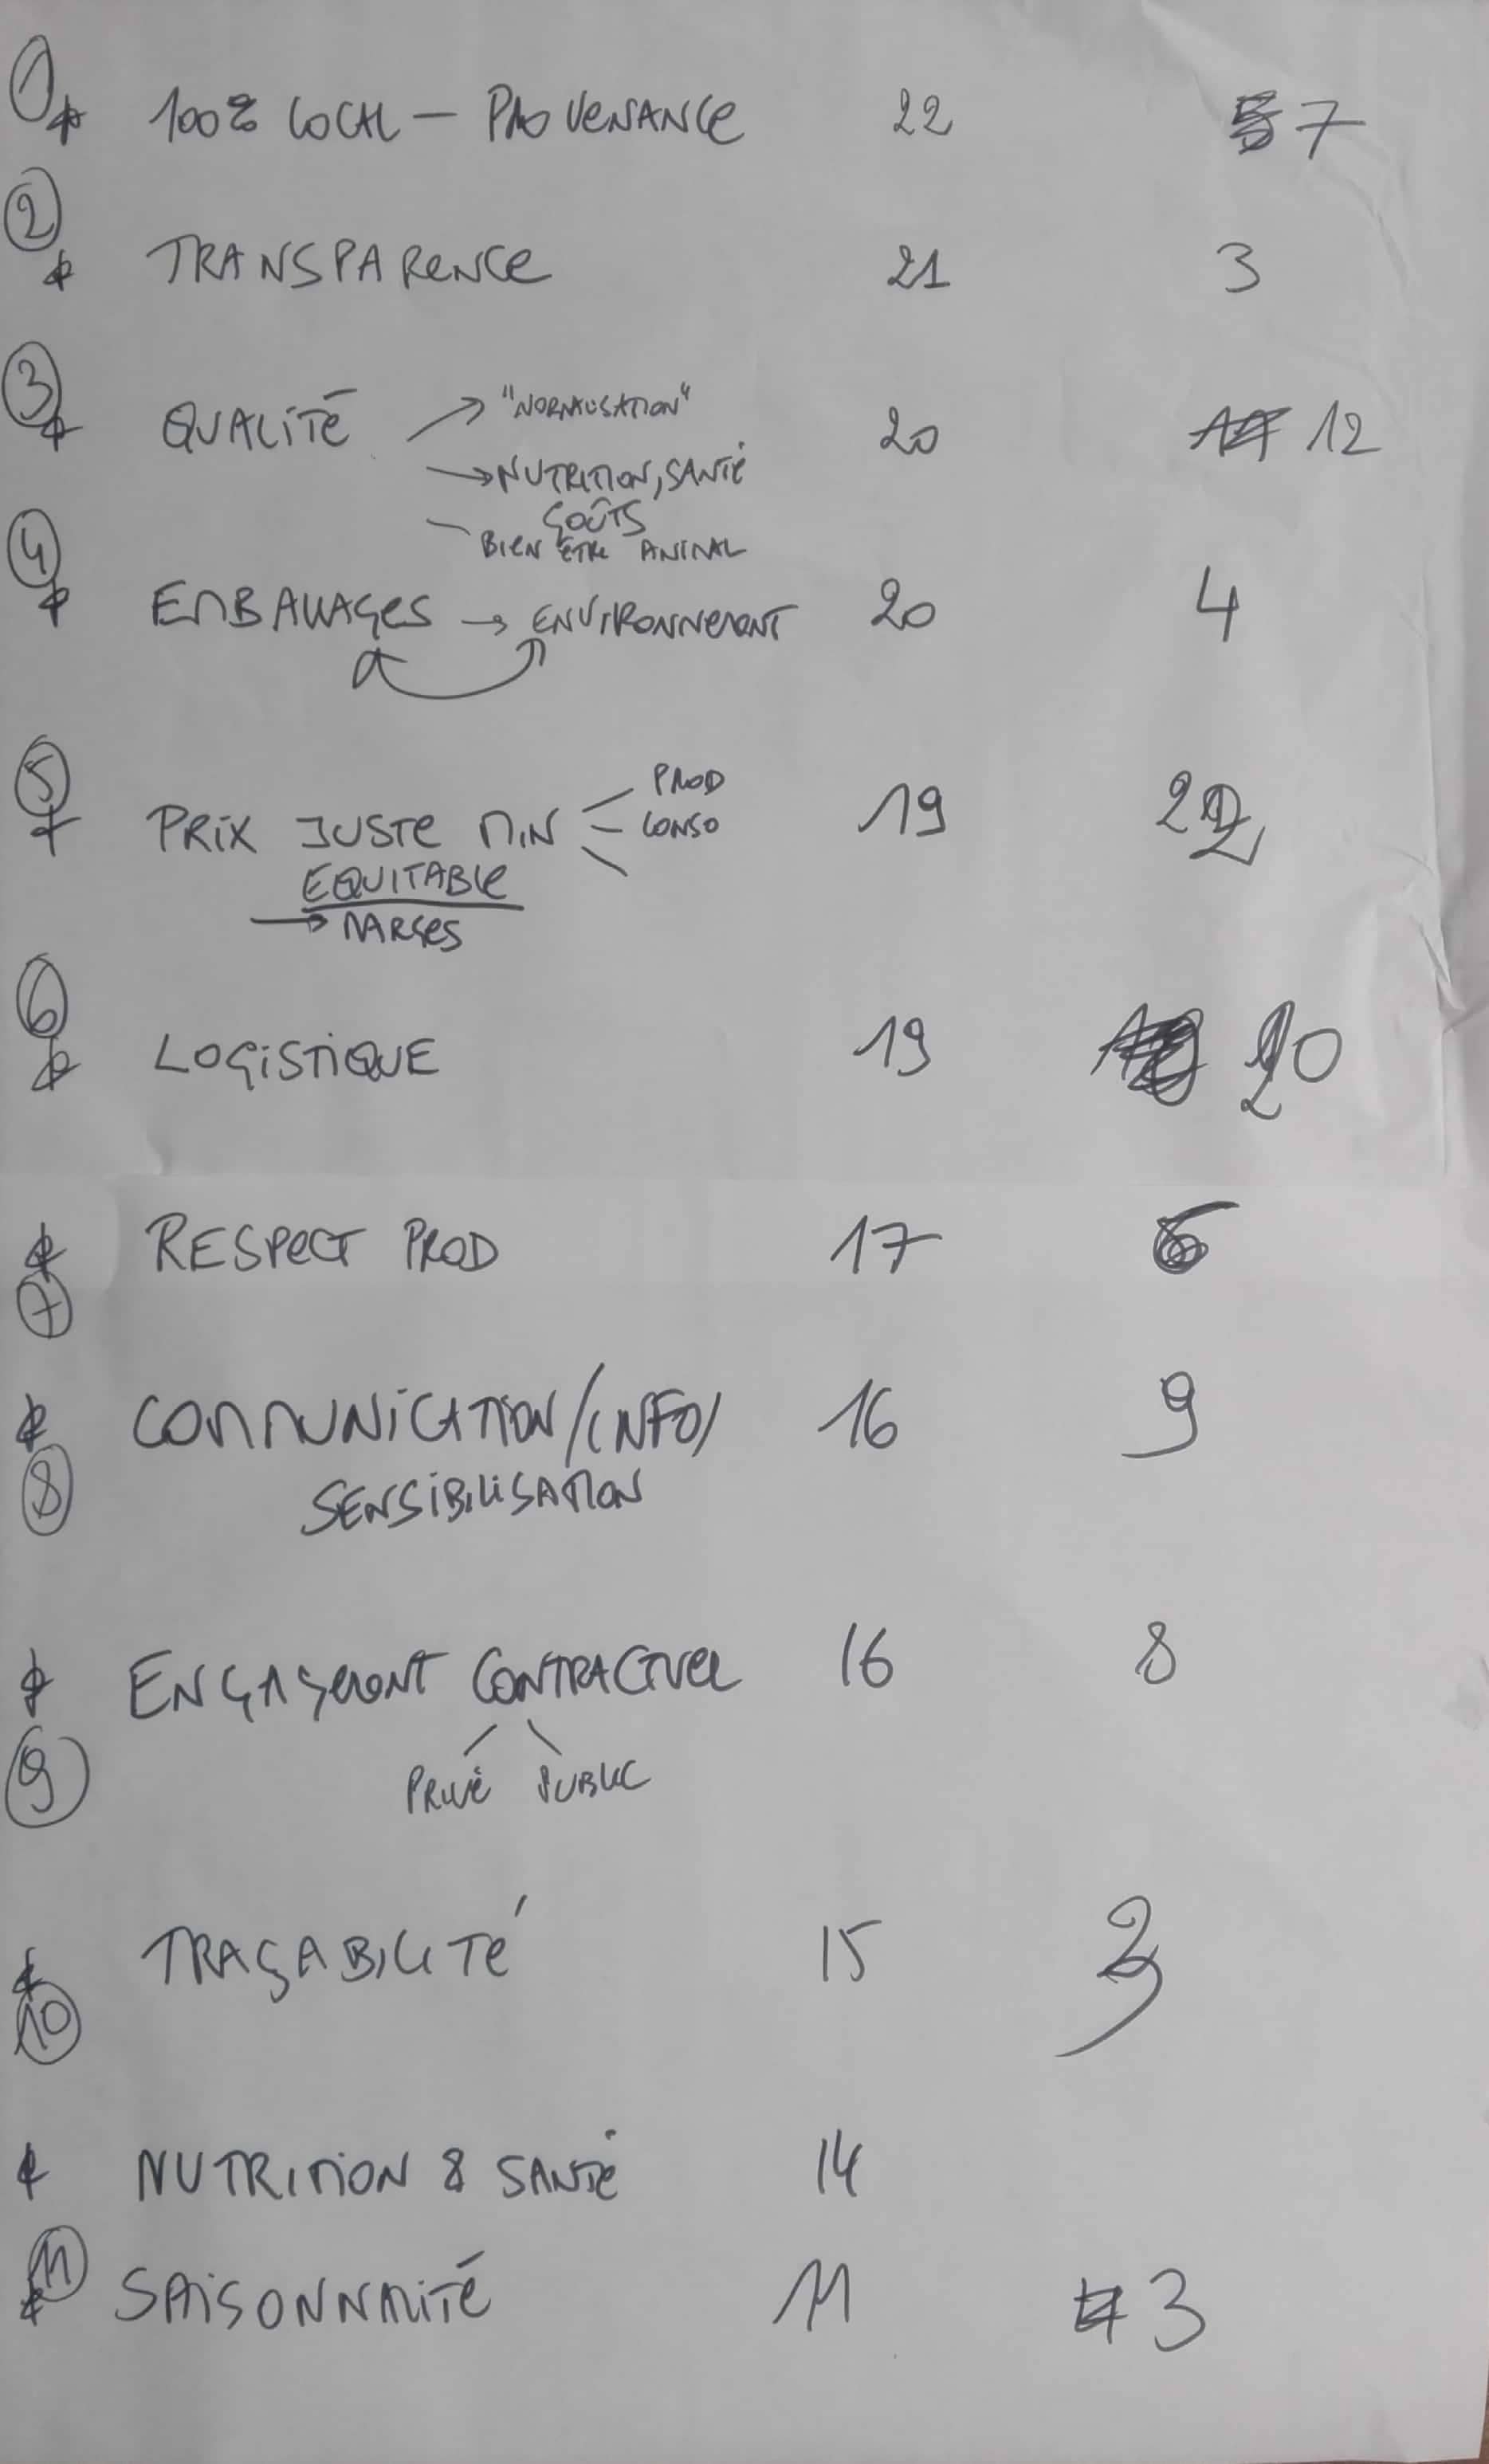 ① * 100% LOCAL — PROVENANCE 22 7
② * TRANSPARENCE 21 3
③ * QUALITÉ → "NORMALISATION" 20 12
→ NUTRITION, SANTÉ
GOÛTS
BIEN ÊTRE ANIMAL
④ * EMBALLAGES → ENVIRONNEMENT 20 4
⑤ * PRIX JUSTE MIN PROD 19 22
CONSO
EQUITABLE
→ MARGES
⑥ * LOGISTIQUE 19 20
⑦ * RESPECT PROD 17
⑧ * COMMUNICATION/(INFO) 16 9
SENSIBILISATION
⑨ * ENGAGEMENT CONTRACTUEL 16 8
PRIVÉ PUBLIC
⑩ * TRAÇABILITÉ 15
* NUTRITION & SANTÉ 14
⑪ * SAISONNALITÉ 11 3